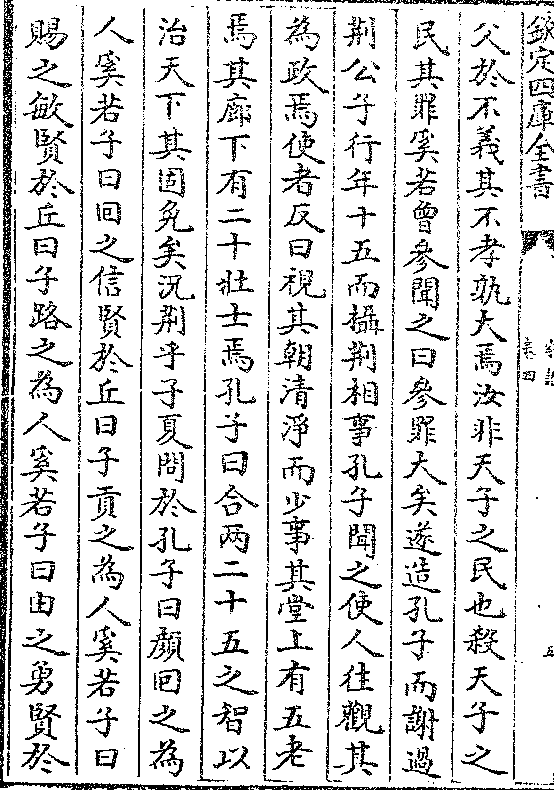 欽定四庫全書
父於不義其不孝孰大焉汝非天子之民也殺天子之
民其罪奚若曾參聞之曰參罪大矣遂造孔子而謝過
荆公子行年十五而攝荆相事孔子聞之使人往觀其
為政焉使者反曰視其朝清淨而少事其堂上有五老
焉其廊下有二十壯士焉孔子曰合兩二十五之智以
治天下其固免矣況荆乎子夏問於孔子曰顏回之為
人奚若子曰回之信賢於丘曰子貢之為人奚若子曰
賜之敏賢於丘曰子路之為人奚若子曰由之勇賢於